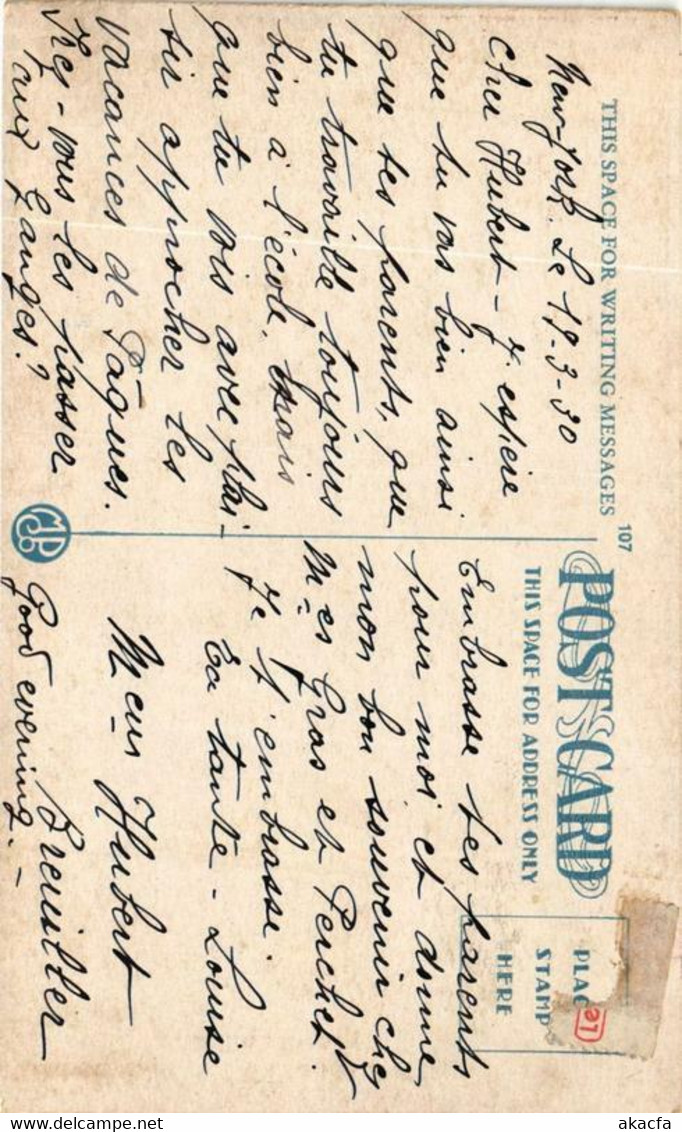 THIS SPACE FOR WRITING MESSAGES
New-York. Le 19-3-30
Cher Hubert - J'espère
que tu vas bien ainsi
que tes parents, que
tu travaille toujours
bien à l'école, mais
que tu vois avec plai-
sir approcher les
vacances de Pâques.
Irez-vous les passer
aux Granges?
107
POST CARD
THIS SPACE FOR ADDRESS ONLY
PLAC
STAMP
HERE
Embrasse tes parents
pour moi et donne
mon bon souvenir chez
Mes Gras et Perchet.
Je t'embrasse.
Ta tante - Louise
Meur Hubert
Good evening. -
www.delcampe.net
akacfa